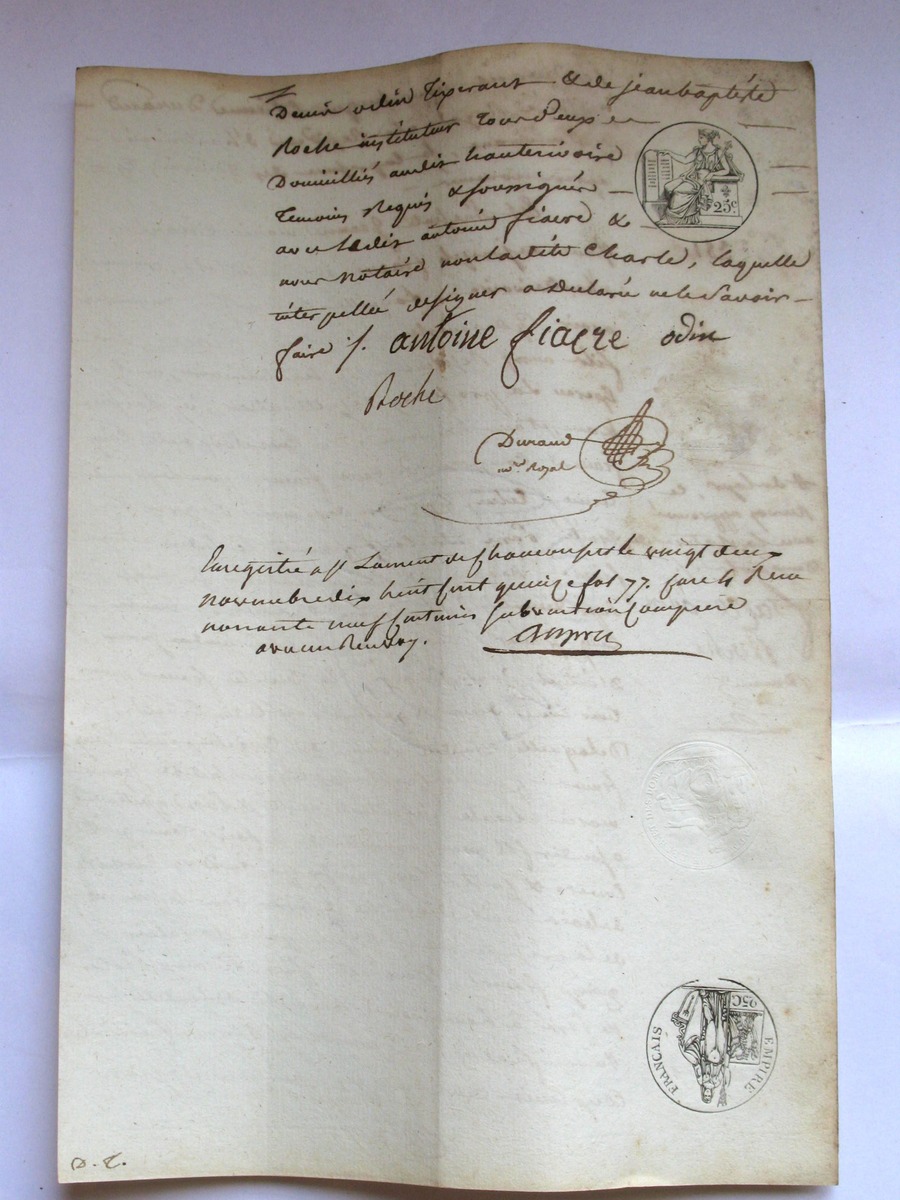 Denis odin Tixerant & de jean baptiste
Roche instituteur tous deux
Domicilliés audit hauterivoire
Temoins Requis & soussignés
avec ledit antoine fiacre &
nous Notaire non ladite Charle, laquelle
interpellée de signer a declaré ne le Savoir
faire /. antoine fiacre odin
Roche
25c
Durand
no.re Royal
Enregistré a St Laurent de Chamousset le vingt deux
novembre dix huit cent quinze fol 77.
nonante neuf centimes subvention Comprise
EMPIRE FRANÇAIS
25C
D. T.